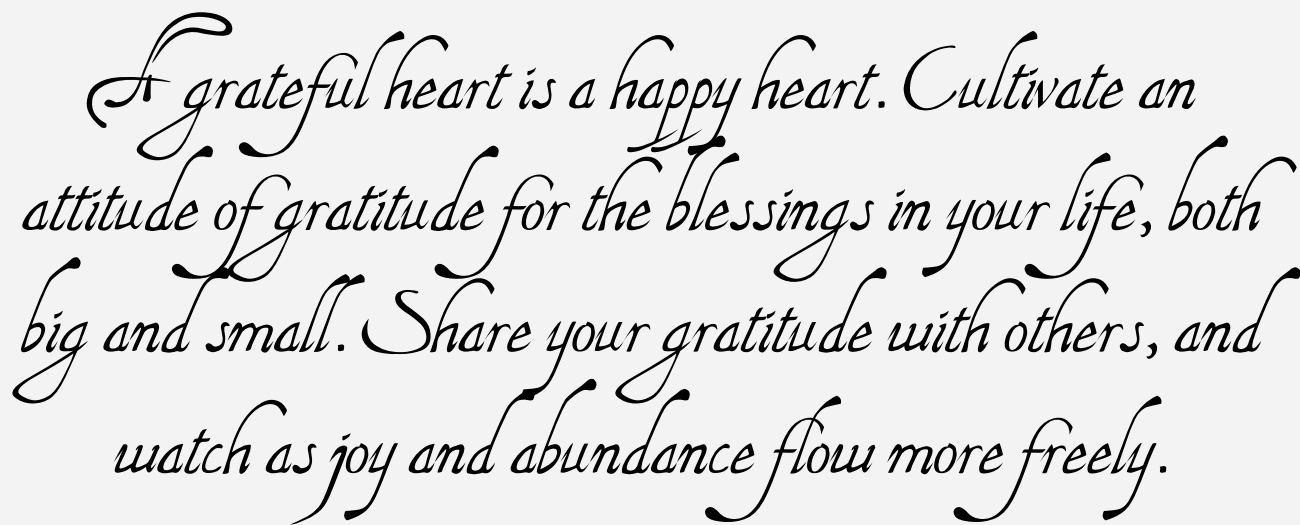 A grateful heart is a happy heart. Cultivate an
attitude of gratitude for the blessings in your life, both
big and small. Share your gratitude with others, and
watch as joy and abundance flow more freely.